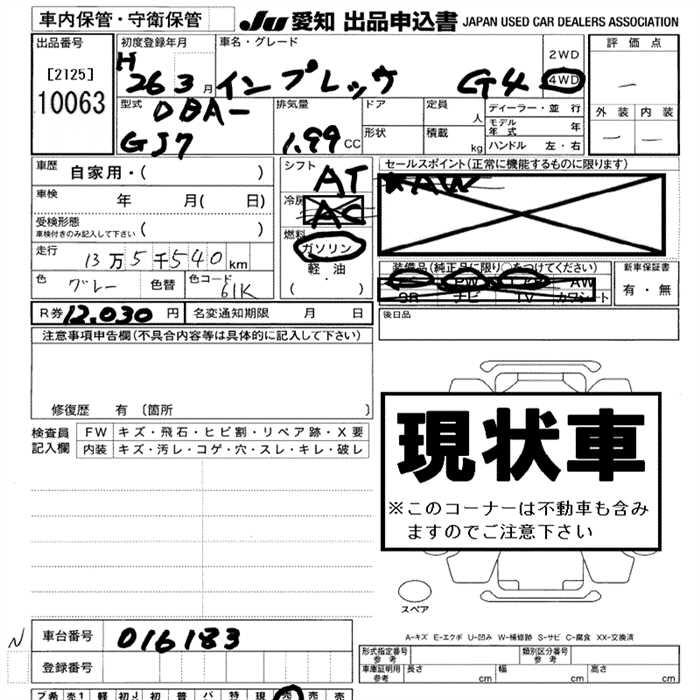 車内保管・守衛保管
JU 愛知 出品申込書 JAPAN USED CAR DEALERS ASSOCIATION
出品番号
[2125]
10063
初度登録年月
H 26 3月
車名・グレード
インプレッサ G4
2WD
4WD
評価点
－
外装 内装
－ －
型式
DBA-
GJ7
排気量
1.99 CC
ドア
定員
人
形状
積載
kg
ディーラー・並行
モデル年式 年
ハンドル 左・右
車歴 自家用・( )
車検 年 月( 日)
受検形態
車検付きのみ記入して下さい ( )
走行 13万5千540km
色 グレー 色替 色コード 61K
シフト AT
冷房 AC
燃料
ガソリン
軽油
( ・ )
セールスポイント(正常に機能するものに限ります)
AW
装備品(純正品に限り○をつけてください)
PS PW エアB AW
SR ナビ TV カワシート
新車保証書
有・無
R券 12,030円 名変通知期限 月 日
後日品
注意事項申告欄(不具合内容等は具体的に記入して下さい)
修復歴 有 〔箇所 〕
検査員記入欄
FW キズ・飛石・ヒビ割・リペア跡・X要
内装 キズ・汚レ・コゲ・穴・スレ・キレ・破レ
現状車
※このコーナーは不動車も含みますのでご注意下さい
スペア
A-キズ E-エクボ U-凹み W-補修跡 S-サビ C-腐食 XX-交換済
N
車台番号 016183
登録番号
形式指定番号 参考
類別区分番号 参考
車庫証明用 参考 長さ cm 幅 cm 高さ cm